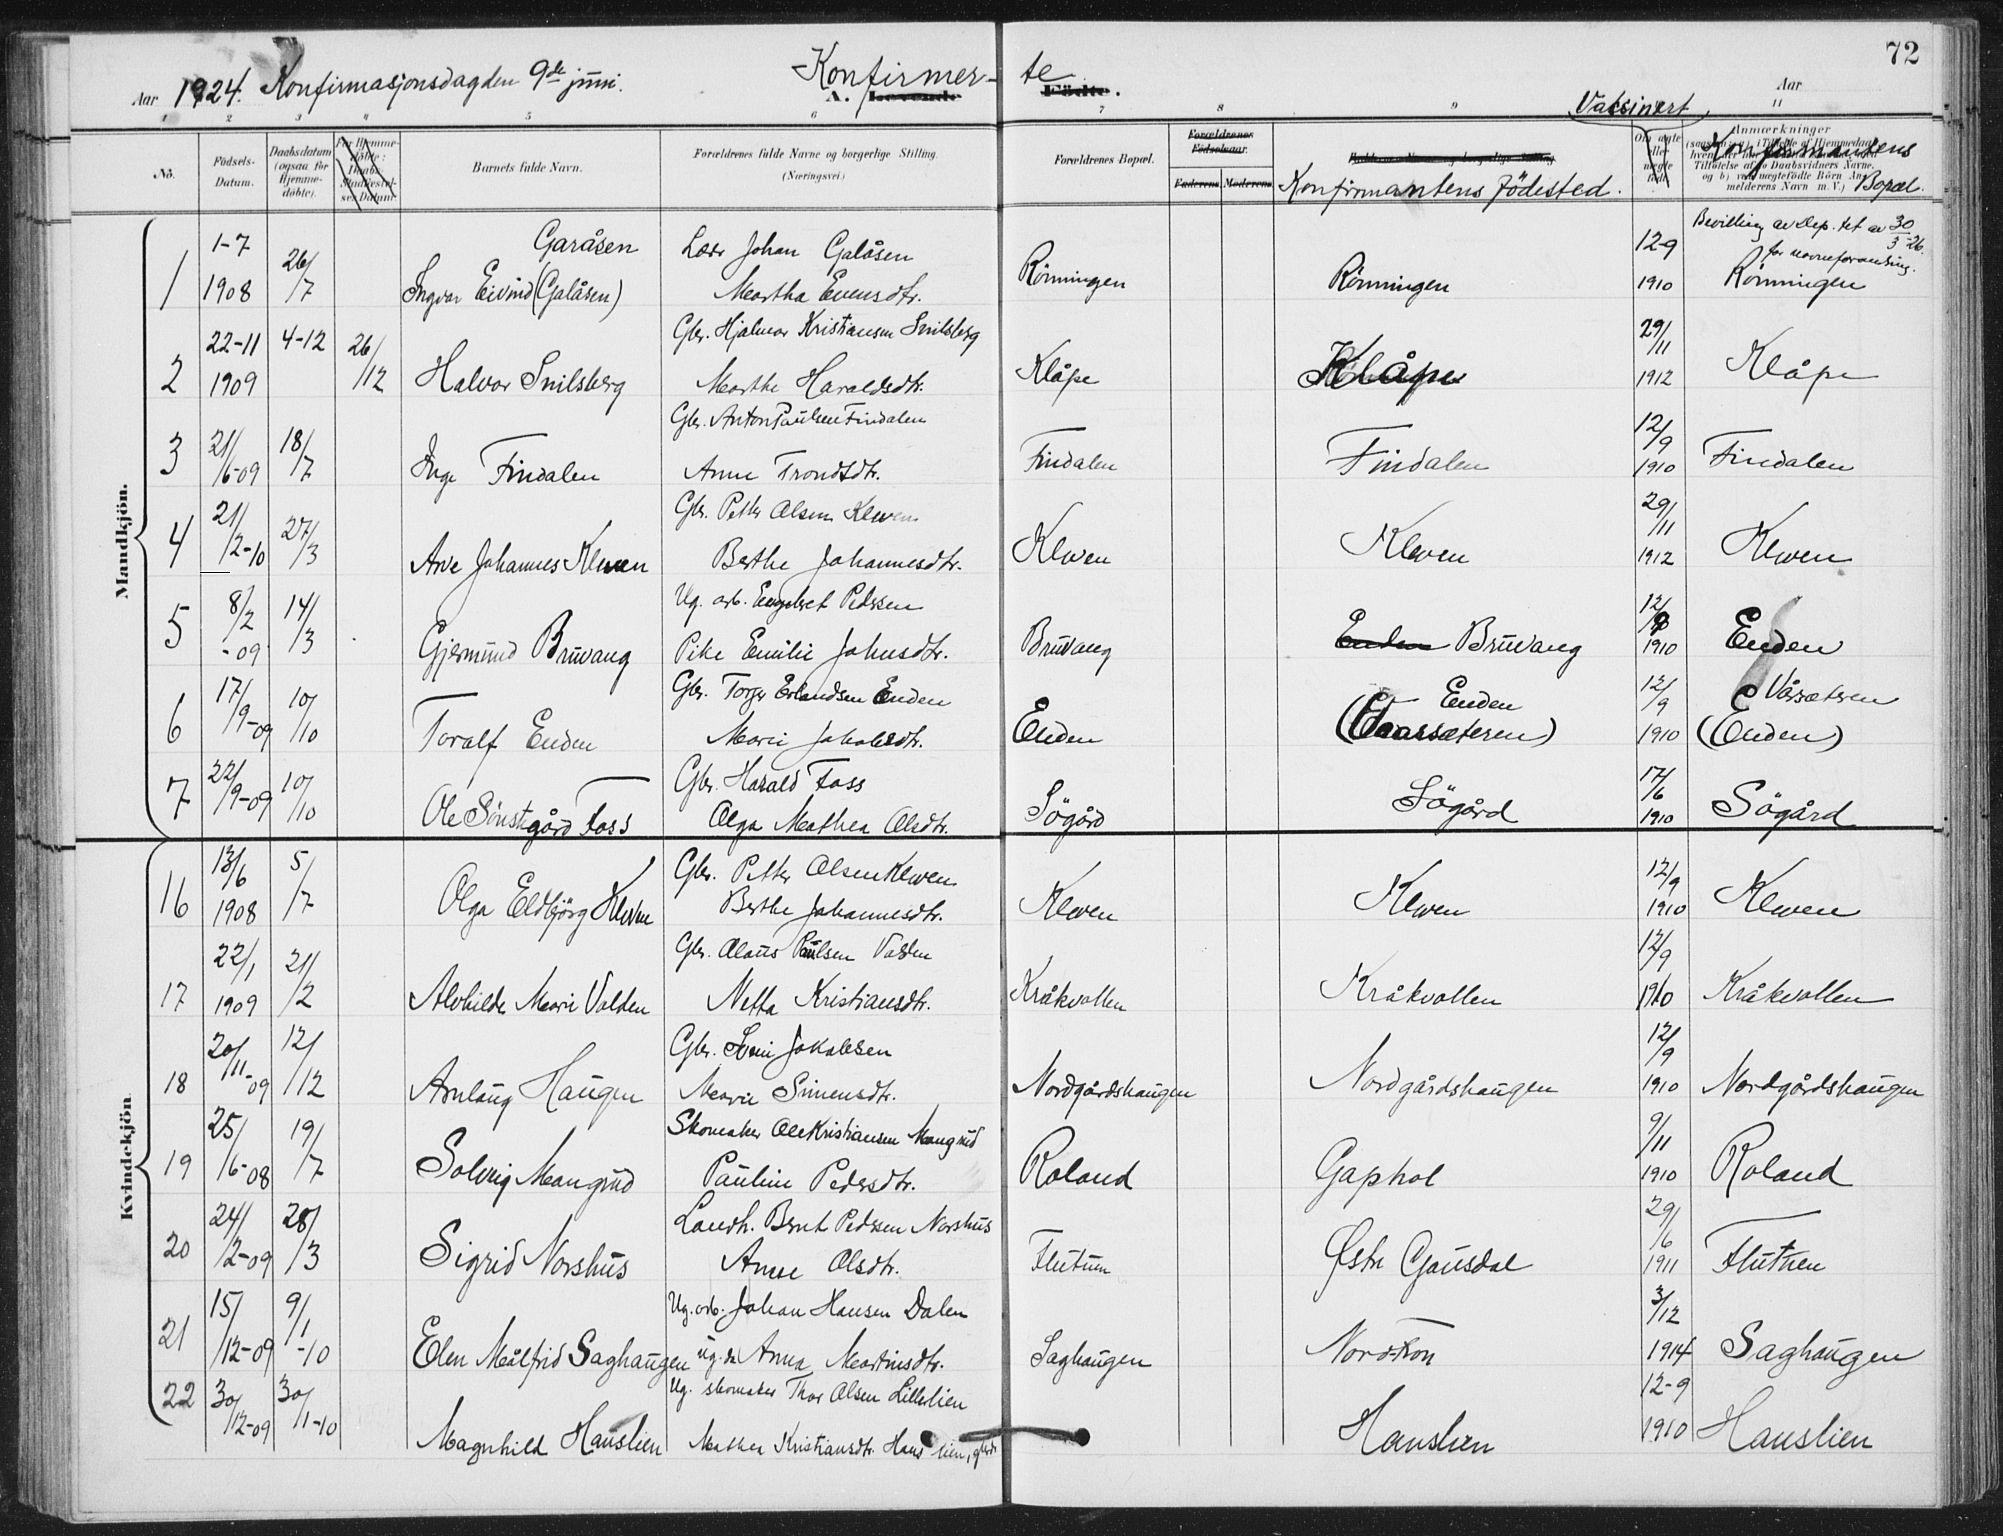 72
Aar 1924. Konfirmasjonsdag den 9de juni.
Konfirmer- te
A. Levende Födte.
Aar
1 2 3 4 5 6 7 8 9 11
Vaksinert
No.
Födsels-Datum.
Daabsdatum (ogsaa for Hjemme-döbte).
Barnets fulde Navn.
Forældrenes fulde Navne og borgerlige Stilling. (Næringsvei.)
Forældrenes Bopæl.
Forældrenes Födselsaar.
Faderens Moderens
Konfirmantens födested.
Anmærkninger
Konfirmantens Bopæl.
Mandkjön.
1 1-7 1908 26/7 Ingvar Eivind (Galåsen) Garåsen
Lær Johan Galåsen
Martha Evensdtr.
Rönningen Rönningen 12-9 1910
Bevilling av dep.tet av 30/3-26.
for navneforandring.
Rönningen
2 22-11 1909 4-12 26/12 Halvor Snilsberg
Gbr. Hjalmar Kristiansen Snilsberg
Marthe Haraldsdtr.
Klåpe Klåpe 29/11 1912 Klåpe
3 21/6-09 18/7 Inge Findalen
Gbr. Anton Paulsen Findalen
Anne Trondsdtr.
Findalen Findalen 12/9 1910 Findalen
4 21/2-10 27/3 Arve Johannes Kleven
Gbr. Petter Olsen Kleven
Berthe Johannesdtr.
Kleven Kleven 29/11 1912 Kleven
5 8/2-09 14/3 Gjermund Bruvang
Ug. arb. Engebret Pedersen
Pike Emilie Johnsdtr.
Bruvang Enden Bruvang 12/9 1910 Enden
6 17/9-09 10/10 Toralf Enden
Gbr. Torger Erlandsen Enden
Marie Jakobsdtr.
Enden Enden (Vaarsæteren) 12/9 1910 Vårsæteren (Enden)
7 22/9-09 10/10 Ole Sönstegård Foss
Gbr. Harald Foss
Olga Mathea Olsdtr.
Sögård Sögård 17/6 1910 Sögård
Kvindekjön.
16 13/6 1908 5/7 Olga Eldbjörg Kleven
Gbr. Petter Olsen Kleven
Berthe Johannesdtr.
Kleven Kleven 12/9 1910 Kleven
17 22/1 1909 21/2 Alvhilde Marie Valden
Gbr. Olaus Paulsen Valden
Netta Kristiansdtr.
Kråkvollen Kråkvollen 12/9 1910 Kråkvollen
18 20/11-09 12/12 Arnlaug Haugen
Gbr. Jakobsen
Marie Simensdtr.
Nordgårdshaugen Nordgårdshaugen 12/9 1910 Nordgårdshaugen
19 25/6-08 19/7 Solveig Mangrud
Skomaker Ole Kristiansen Mangrud
Pauline Pedersdtr.
Roland Gaphol 9/11 1910 Roland
20 24/2-09 28/3 Sigrid Norshus
Landh. Bernt Pedersen Norshus
Anne Olsdtr.
Flutum Østre Gausdal 29/6 1911 Fluthen
21 15/12-09 9/1-10 Elen Målfrid Saghaugen
Ug. arb. Johan Hansen Dalen
ug. Anna Martinsdtr.
Saghaugen Nordron 3/12 1914 Saghaugen
22 30/12-09 30/1-10 Magnhild Hanslien
Ug. skomaker Thor Olsen Lillelien
Mathea Kristiansdtr. Hanslien,
Hanslien 12-9 1910 Hanslien